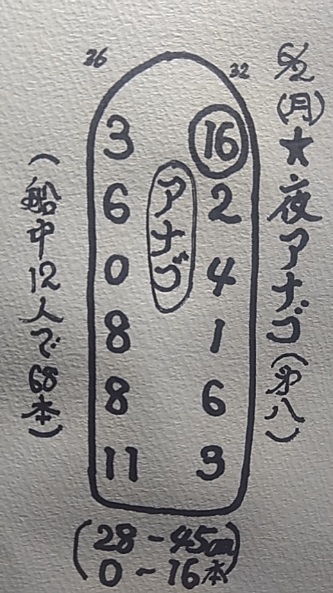 6/2(月)★夜アナゴ(第八)
36 32
3 16
6 2
0 4
8 1
8 6
11 3
アナゴ
(船中12人で68本)
(28-45cm
0~16本)